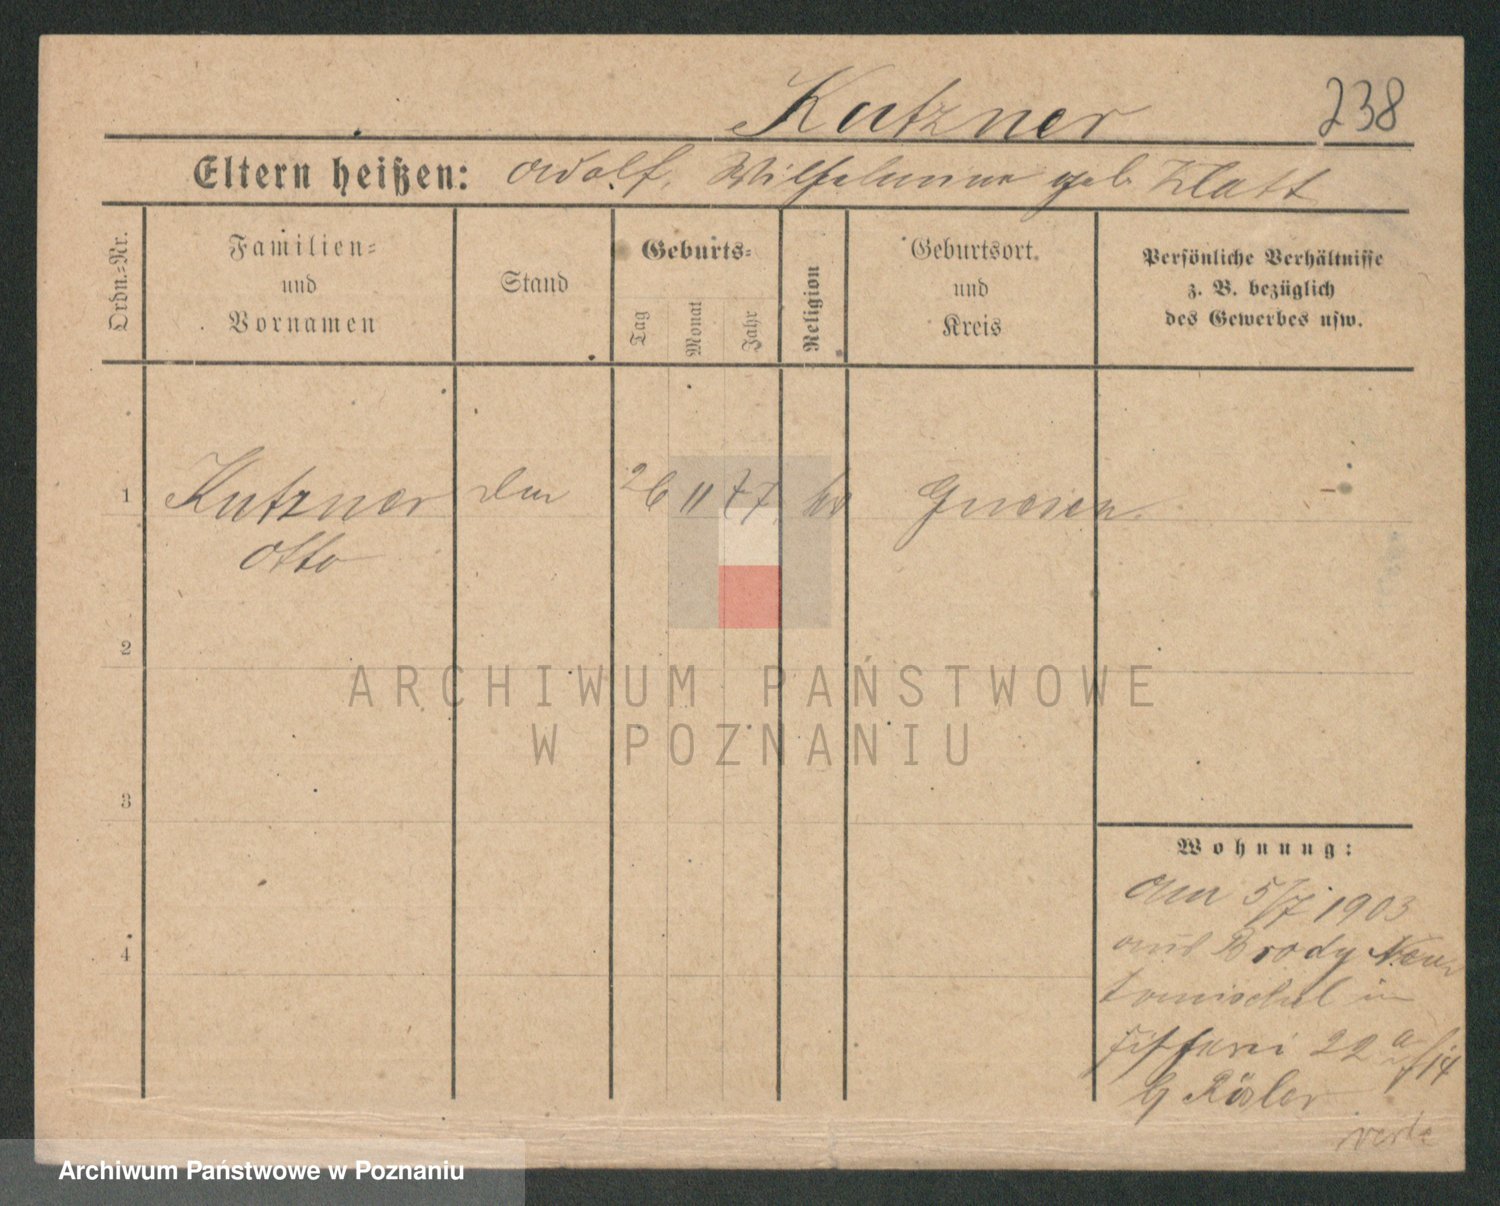 Kutzner 238
Eltern heißen: Adolf, Wilhelmine geb. Klatt
Ordn.=Nr.
Familien=
und
Vornamen
Stand
Geburts=
Tag
Monat
Jahr
Religion
Geburtsort
und
Kreis
Persönliche Verhältnisse
z. B. bezüglich
des Gewerbes usw.
1 Kutzner 26 11 77 Gnesen
Otto
2
ARCHIWUM PAŃSTWOWE
W POZNANIU
3
Wohnung:
5/7 1903
4
aus Brody Neu
tomischel in
22
b/ Rösler
Archiwum Państwowe w Poznaniu